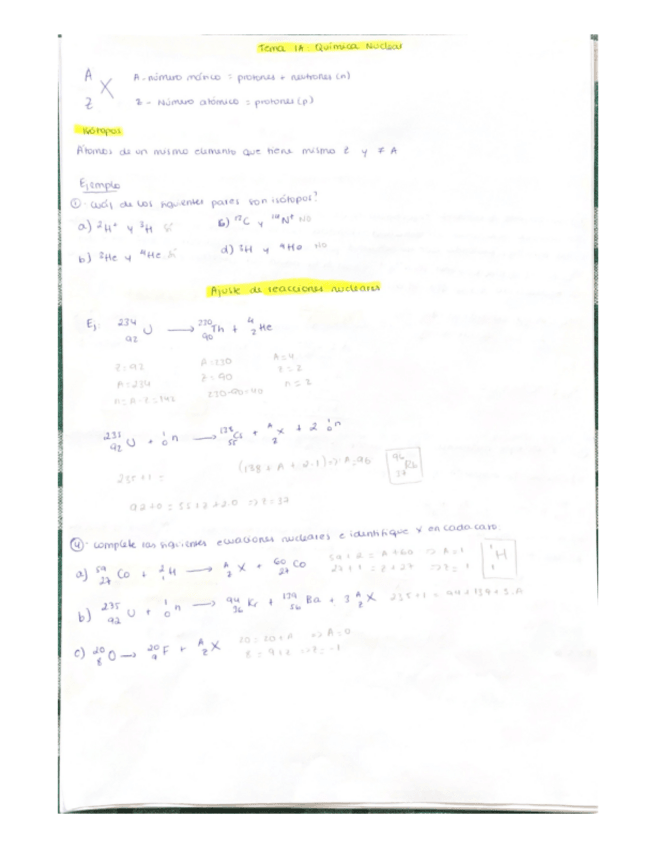 Tema 1A: Química Nuclear
A X Z
A - número másico = protones + neutrones (n)
Z - Número atómico = protones (p)
Isótopos
Átomos de un mismo elemento que tiene misma Z y ≠ A
Ejemplo
① - ¿Cuáles de los siguientes pares son isótopos?
a) ²H⁺ y ³H sí
c) y NO
b) ³He y ⁴He sí
d) ³H y ⁴He NO
Ajuste de reacciones nucleares
Ej: ²³⁴₉₂U → ²³⁰₉₀Th + ⁴₂He
Z=92 A=230 A=4
A=234 Z=90 Z=2
n=A-Z=142 230-90=140 n=2
²³⁵₉₂U + ¹₀n → ¹³⁸₅₅Cs + ᴬ_Z X + 2 ¹₀n
235+1 = (138+A+2·1) => A=96 ⁹⁶₃₇Rb
92+0=55+Z+2·0 => Z=37
④ - Complete las siguientes ecuaciones nucleares e identifique X en cada caso.
a) ⁵⁹₂₇Co + ²₁H → ᴬ_Z X + ⁶⁰₂₇Co 59+2=A+60 => A=1 ¹₁H
27+1=Z+27 => Z=1
b) ²³⁵₉₂U + ¹₀n → ⁹⁴₃₆Kr + ¹³⁹₅₆Ba + 3 ᴬ_Z X 235+1=94+139+3·A
c) ²⁰₈O → ²⁰₉F + ᴬ_Z X 20=20+A => A=0
8=9+Z => Z=-1